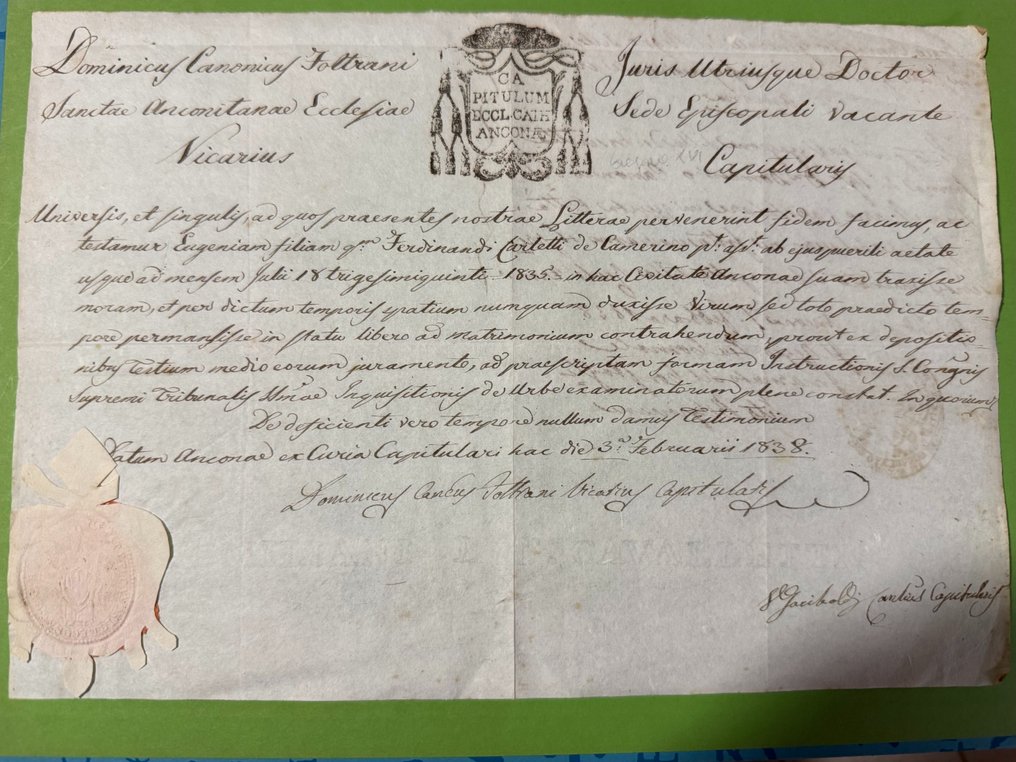 Dominicus Canonicus Foltrani
Juris Utriusque Doctor
Sanctae Anconitanae Ecclesiae
Sede Episcopali vacante
Vicarius
Capitularis
CA
PITULUM
ECCL·CATH
ANCONÆ
XVI
Universis, et singulis, ad quos praesentes nostrae Litterae pervenerint fidem facimus, ac
testamur Eugeniam filiam qm Ferdinandi Carletti de Camerino ab ejus puerili aetate
usque ad mensem Julii 18 trigesimiquinti - 1835 - in hac Civitate Anconae suam traxisse
moram, et per dictum temporis spatium nunquam duxisse Virum sed toto praedicto tem-
pore permansisse in statu libero ad matrimonium contrahendum, prout ex depositio-
nibus Testium medio eorum juramento, ad praescriptam formam Instructionis S. Congnis
Supremi Tribunalis Smae Inquisitionis de Urbe examinatorum plene constat. In quorum
De deficienti vero tempore nullum damus Testimonium
Datum Anconae ex Curia Capitulari hac die 3.a Februarii 1838.
Dominicus Cancus Foltrani Vicarius Capitularis
Canrius Capitularis